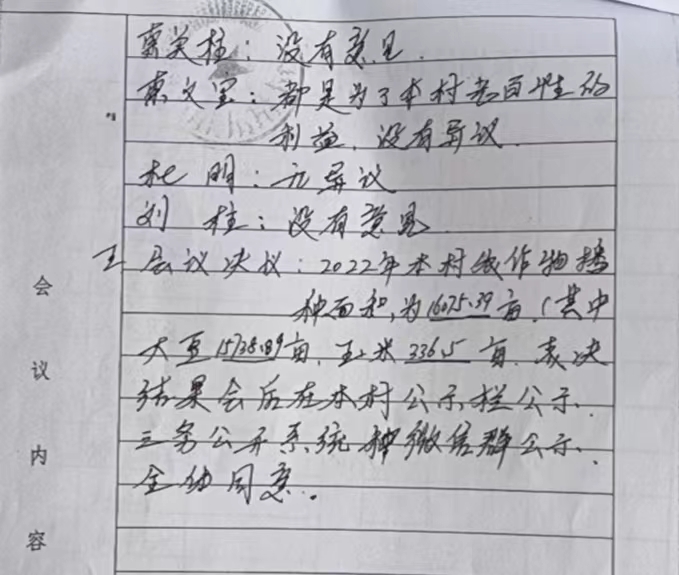 关柱：没有意见.
文宝：都是为了本村老百姓的
利益，没有异议.
杜明：无异议
刘柱：没有意见.
会议决议：2022年本村农作物播
种面积，为16075.39亩（其中
大豆15738.89亩，玉米336.5亩，表决
结果会后在本村公示栏公示.
三务公开系统种微信群公示.
全体同意.
会
议
内
容